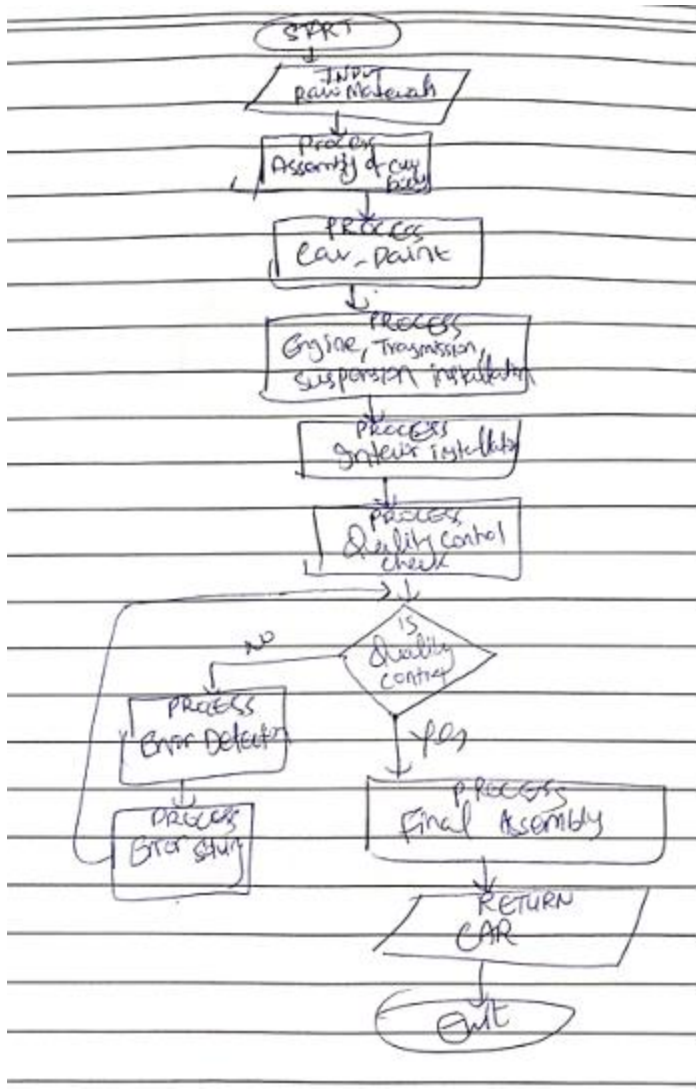 START
INPUT
Raw Materials
Process
Assembly of car
body
PROCESS
Car paint
PROCESS
Engine, Trasmission,
suspension installation
PROCESS
Interior
PROCESS
Quality control
check
is
Quality
control
NO
Yes
PROCESS
Error Detection
PROCESS
Final Assembly
PROCESS
Error
RETURN
CAR